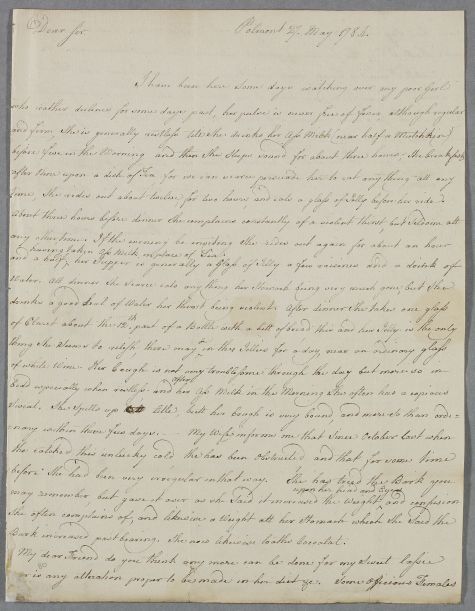 Dear Sir
Polmont 27. May 1784.
I have been here some days watching over my poor Girl
who rather declines for some days past, her pulse is never free of fever although regular
and firm, She is generally restless till she drinks her Ass Milk near half a Mutchkin
before five in the Morning and then She sleeps sound for about three hours. She Breakfasts
after nine upon a dish of Tea for we can never persuade her to eat anything all any
time, She rides out about twelve for two hours and eats a glass of Jelly before her ride.
About three hours before dinner She complains constantly of a violent thirst, but seldome at
any other time. If the evening be inviting She rides out again for about an hour
having taken Ass Milk in place of Tea
and a half; her Supper is generally a Glass of Jelly a few raisins and a drink of
Water. All dinner She scarce eats anything her Stomach being very much gone, but She
drinks a good deal of Water her thirst being violent. After dinner She takes one glass
of Claret about the 12th part of a Bottle with a bitt of bread this and her Jelly is the only
thing She seems to relish, there may be in this Jellies for a day near an ordinary glass
of white Wine. Her Cough is not very troublesome through the day but more so in
bed especially when restless and after her Ass Milk in the Morning She often has a copious
Sweat. She Spitts up little, but her Cough is very bound and more so than ordi-
-nary within these few days. — My Wife informs me that Since October last when
she catched this unlucky cold she has been Obstructed and that for some time
before She had been very irregular in that way. She has tried the Bark you
may remember but gave it over as she Said it increased the Weight and confusion
upon her head and Eyes
She often complains of, and likewise a Weight att her Stomach which She Said the
Bark increased past bearing. She now likewise loaths Chocolat.
My dear Friend do you think any more can be done for my Sweet lassie
or is any alteration proper to be made in her diet &c. Some Officious Females